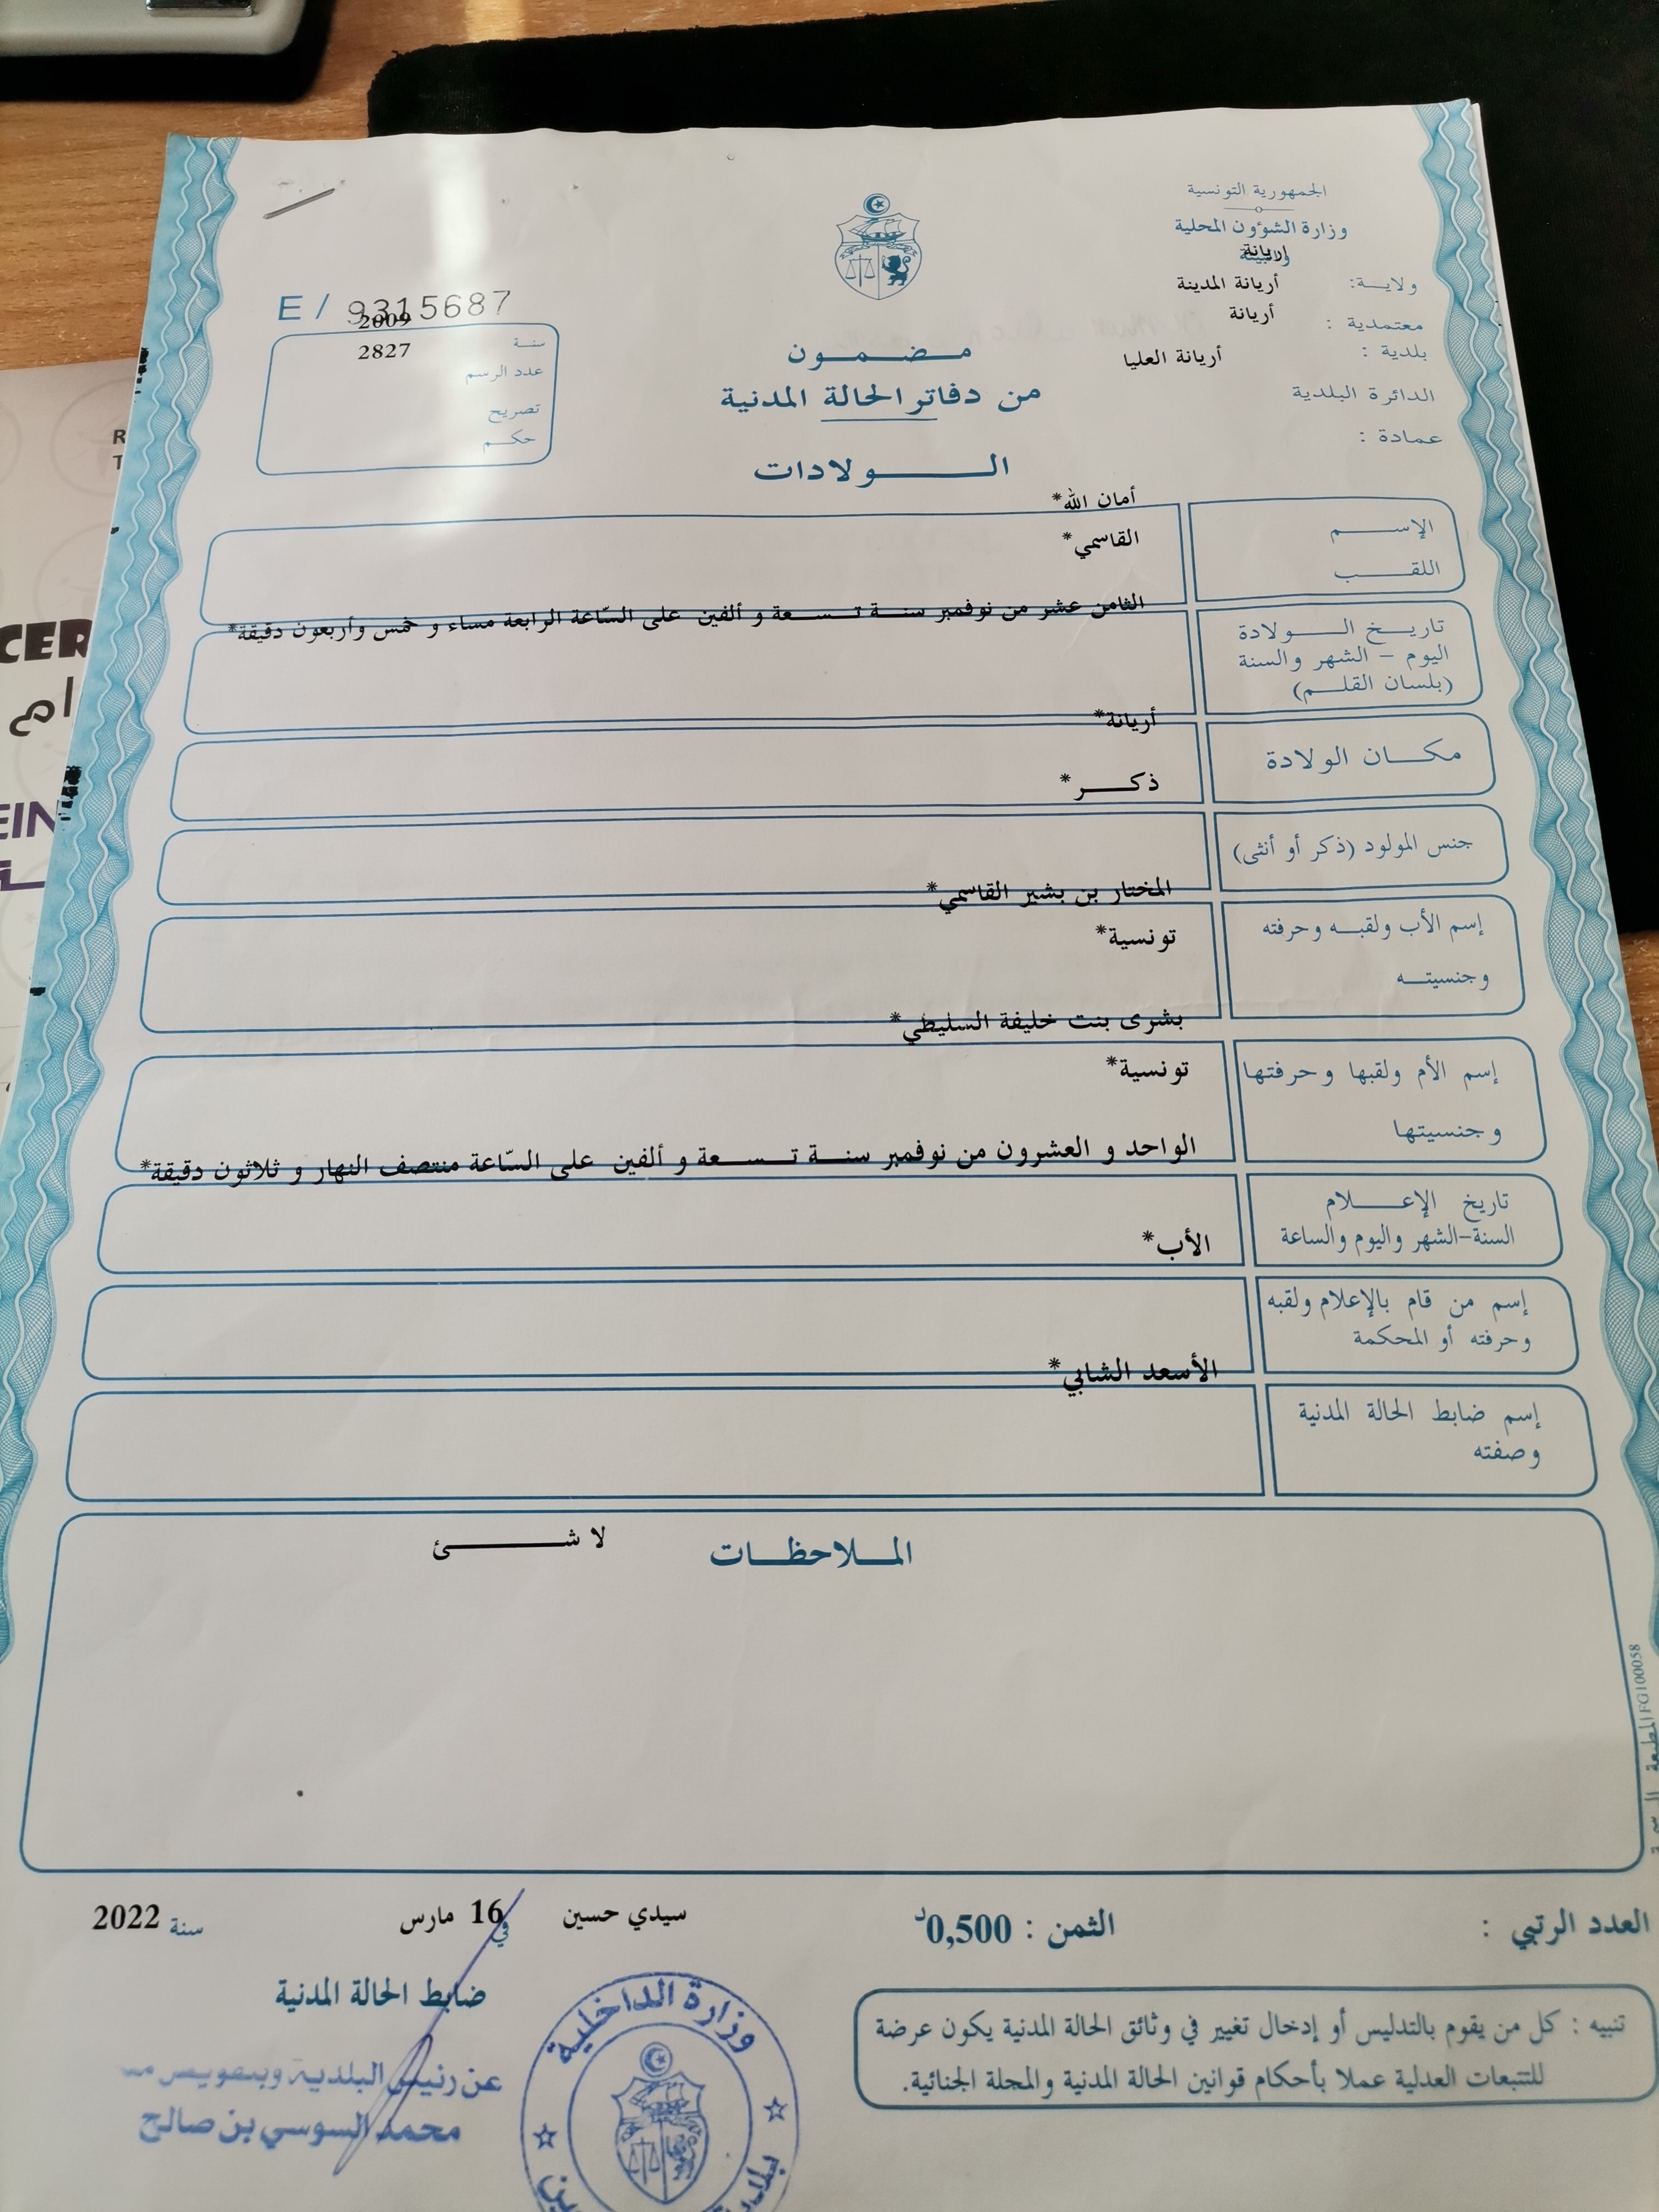 الجمهورية التونسية
وزارة الشؤون المحلية
والبيئة
ولاية: اريانة
معتمدية : أريانة المدينة
بلدية : أريانة
الدائرة البلدية أريانة العليا
عمادة :
E / 9315687
سنة 2009
عدد الرسم 2827
تصريح
حكم
مضمون
من دفاتر الحالة المدنية
الولادات
الإسم أمان الله*
اللقب القاسمي*
تاريخ الولادة
اليوم - الشهر والسنة
(بلسان القلم)
الثامن عشر من نوفمبر سنة تسعة و ألفين على السّاعة الرابعة مساء و خمس وأربعون دقيقة*
مكان الولادة أريانة*
جنس المولود (ذكر أو أنثى) ذكر*
إسم الأب ولقبه وحرفته المختار بن بشير القاسمي*
وجنسيته تونسية*
إسم الأم ولقبها وحرفتها بشرى بنت خليفة السليطي*
وجنسيتها تونسية*
تاريخ الإعلام
السنة-الشهر واليوم والساعة
الواحد و العشرون من نوفمبر سنة تسعة و ألفين على السّاعة منتصف النهار و ثلاثون دقيقة*
إسم من قام بالإعلام ولقبه
وحرفته أو المحكمة
الأب*
إسم ضابط الحالة المدنية
وصفته
الأسعد الشابي*
الملاحظات
لا شئ
المطبعة الرسمية FG100058
العدد الرتبي :
الثمن : 0,500د
سيدي حسين في 16 مارس سنة 2022
ضابط الحالة المدنية
عن رئيس البلدية وبتفويض
محمد السوسي بن صالح
وزارة الداخلية
تنبيه : كل من يقوم بالتدليس أو إدخال تغيير في وثائق الحالة المدنية يكون عرضة
للتتبعات العدلية عملا بأحكام قوانين الحالة المدنية والمجلة الجنائية.
CER
EIN